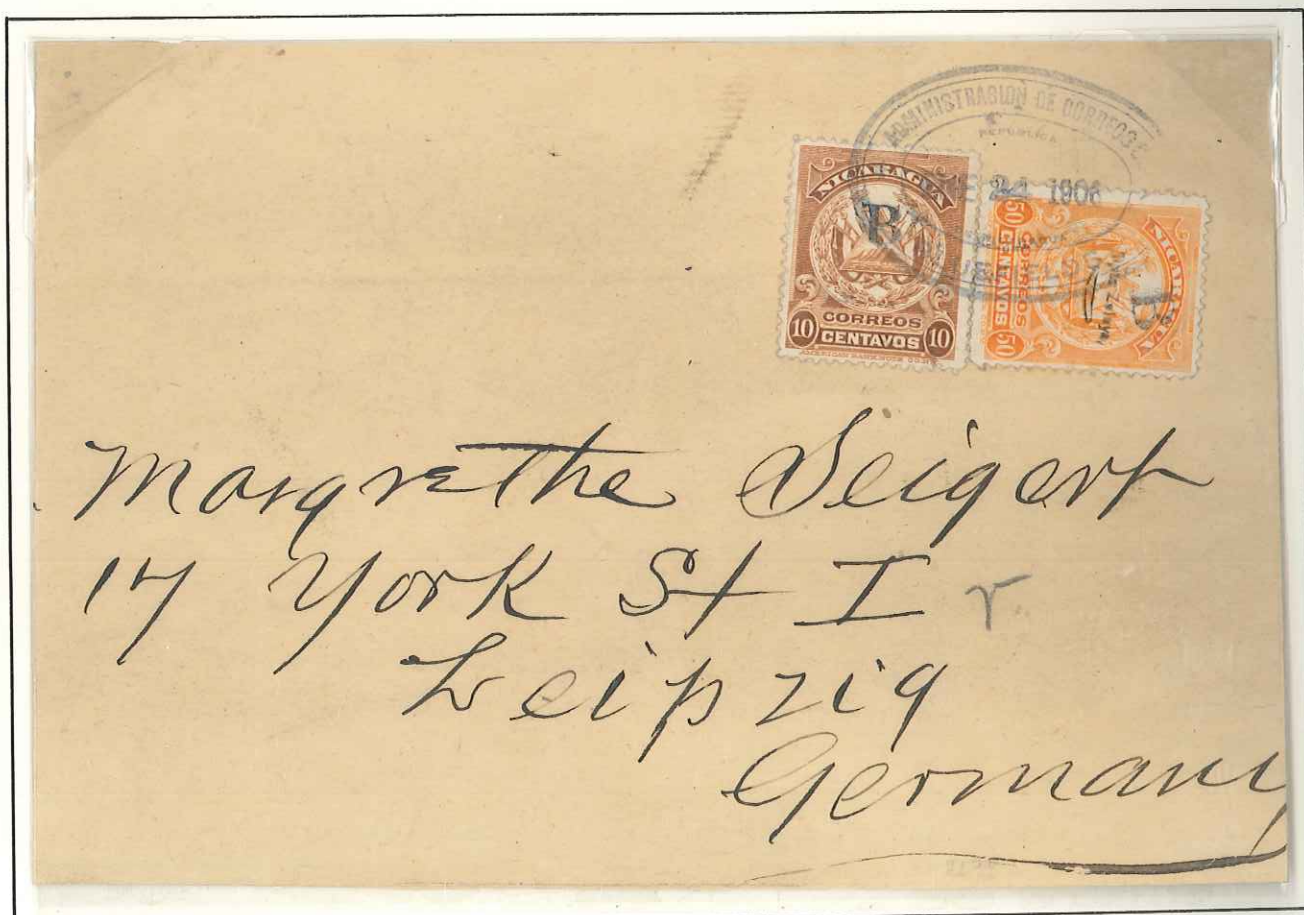 ADMINISTRACION DE CORREOS
REPUBLICA
24 1906
BLUEFIELDS
NICARAGUA
B
10 CORREOS 10
CENTAVOS
AMERICAN BANK NOTE CO. N.Y.
NICARAGUA
B
50 CORREOS 50
CENTAVOS
Margrethe Seigert
17 York St I
Leipzig
Germany